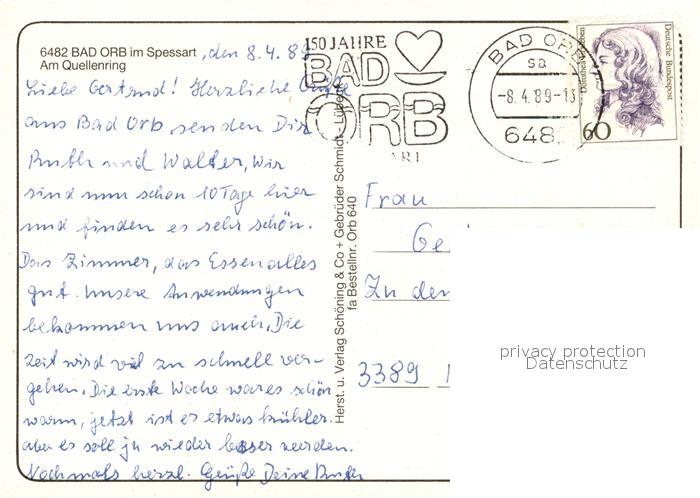 6482 BAD ORB im Spessart, den 8.4.89
Am Quellenring
Liebe Gertrud! Herzliche Grüße
aus Bad Orb senden Dir
Ruth und Walter, Wir
sind nun schon 10 Tage hier
und finden es sehr schön.
Das Zimmer, das Essen alles
gut. Unsere Anwendungen
bekommen uns auch. Die
Zeit wird viel zu schnell ver-
gehen. Die erste Woche war es schön
warm, jetzt ist es etwas kühler.
aber es soll ja wieder besser werden.
Nochmals herzl. Grüße Deine Ruth
Herst. u. Verlag Schöning & Co + Gebrüder Schmidt - Lübeck
fa Bestellnr. Orb 640
150 JAHRE
BAD
ORB
BAD ORB
sa
-8.4.89-13
648
Deutsche Bundespost
60
Frau
Ge
Zu den
3389
privacy protection
Datenschutz